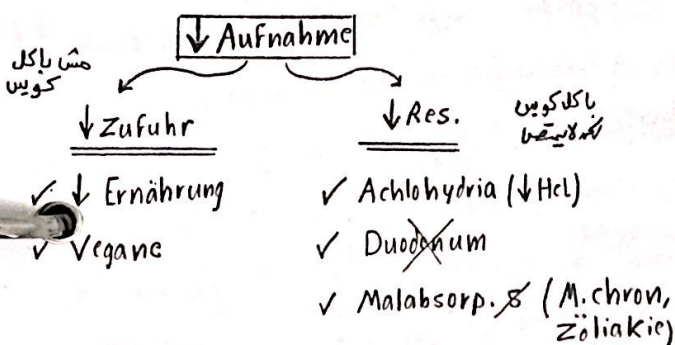 ↓ Aufnahme
مش باكل
كويس
↓ Zufuhr
✓ ↓ Ernährung
✓ Vegane
↓ Res.
باكل كويس
✓ Achlohydria (↓Hcl)
✓ Duodenum
✓ Malabsorp. (M. chron,
Zöliakie)